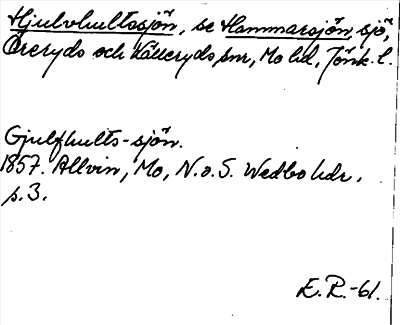 Hjulvhultssjön, se Hammarsjön, sjö,
Öreryds och Källeryds snr, Mo hd, Jönk. l.
Gjulfhults-sjön.
1857. Allvin, Mo, N. o. S. Wedbo hdr.
s. 3.
E. R. -61.